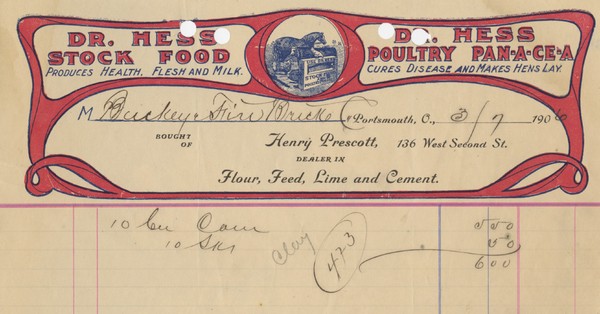 DR. HESS
STOCK FOOD
PRODUCES HEALTH, FLESH AND MILK.
DR. HESS
POULTRY PAN-A-CE-A
CURES DISEASE AND MAKES HENS LAY.
DR. HESS
STOCK
M Buckeye Fire Brick Co
Portsmouth, O., 3/7 1906
BOUGHT OF
Henry Prescott, 136 West Second St.
DEALER IN
Flour, Feed, Lime and Cement.
10 bu Corn 5 50
10 Sks 50
Clay 473
6 00